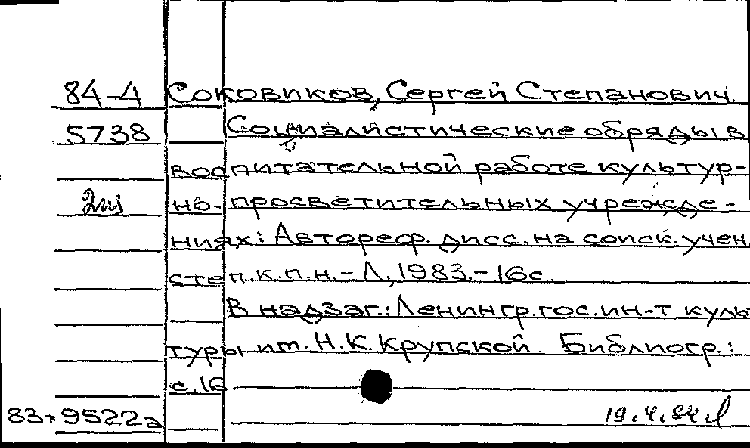 84-4 Соковиков, Сергей Степанович
5738 Социалистические обряды в
воспитательной работе культур-
2ш но-просветительных учрежде-
ниях: Автореф. дисс. на соиск. учен.
степ. к.п.н. - Л., 1983. - 16с.
В надзаг.: Ленингр. гос. ин-т куль
туры им. Н.К. Крупской. Библиогр.:
с. 16
83-9522а 19.4.84